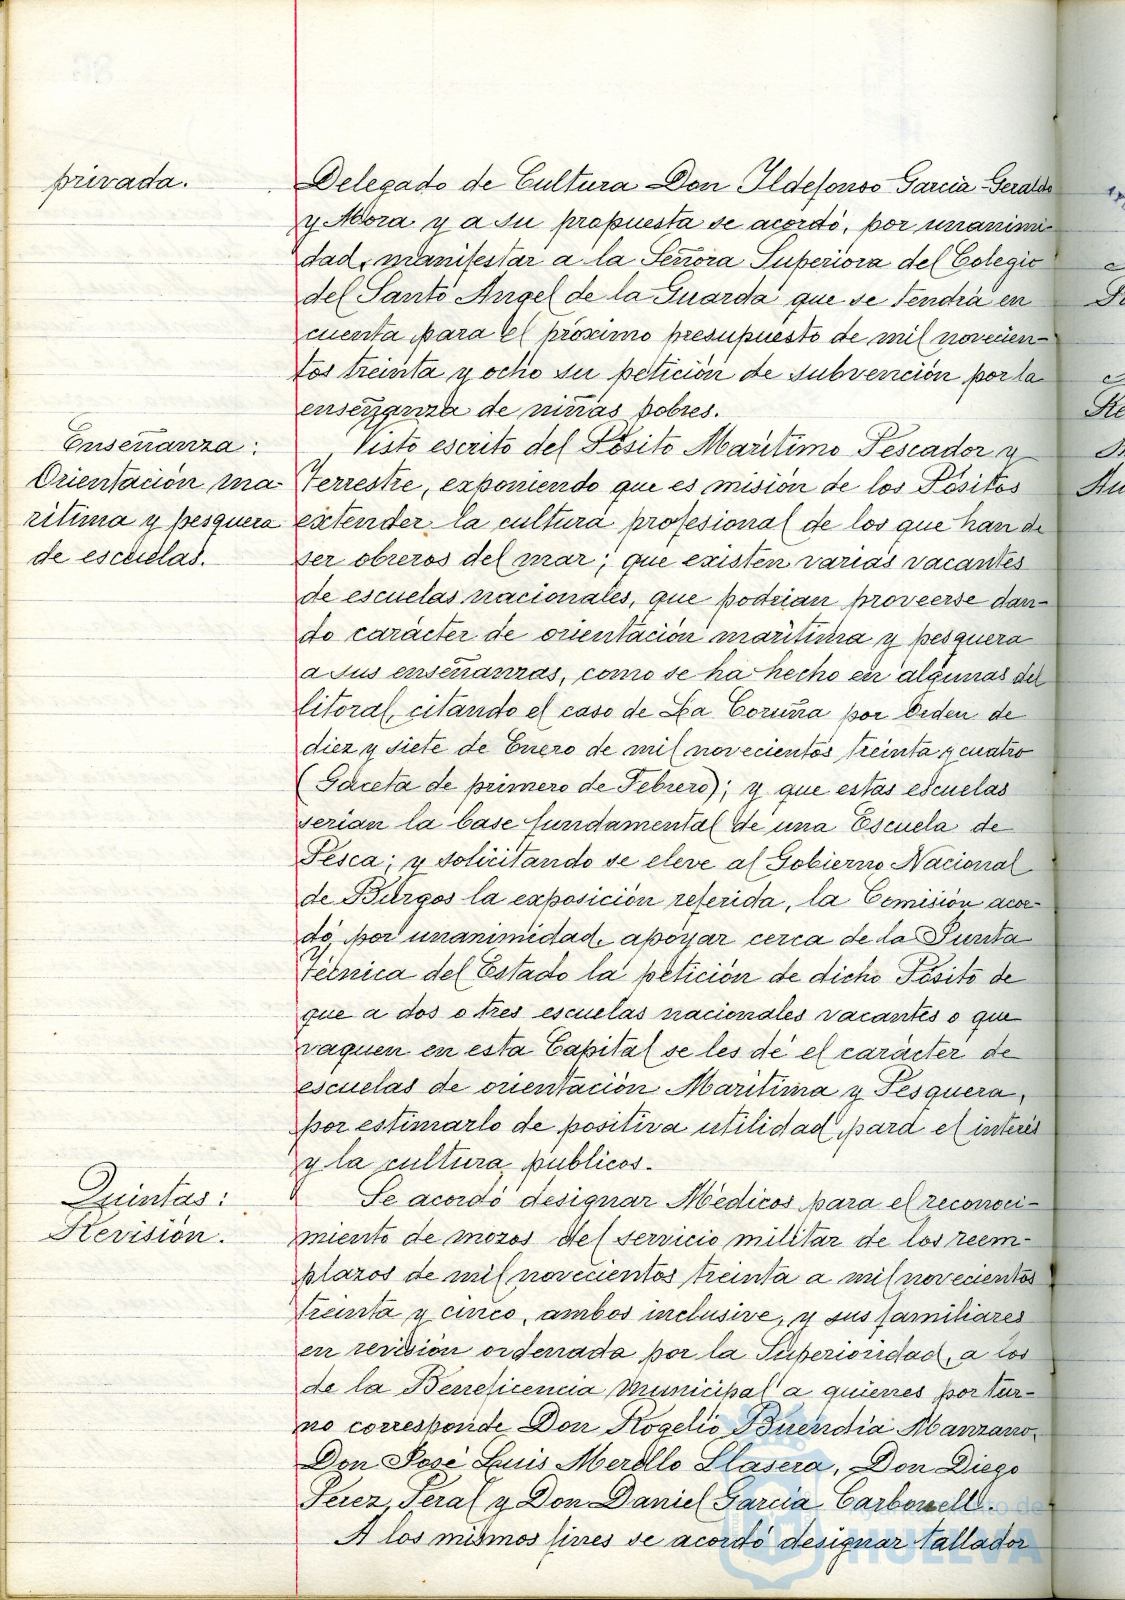 privada.
Delegado de Cultura Don Ildefonso Garcia-Geraldo
y Mora y a su propuesta se acordó, por unanimi-
dad, manifestar a la Señora Superiora del Colegio
del Santo Angel de la Guarda que se tendrá en
cuenta para el próximo presupuesto de mil novecien-
tos treinta y ocho su petición de subvención por la
enseñanza de niñas pobres.
Enseñanza:
Orientación ma-
rítima y pesquera
de escuelas.
Visto escrito del Pósito Marítimo Pescador y
Terrestre, exponiendo que es misión de los Pósitos
extender la cultura profesional de los que han de
ser obreros del mar; que existen varias vacantes
de escuelas nacionales, que podrian proveerse dan-
do carácter de orientación marítima y pesquera
a sus enseñanzas, como se ha hecho en algunas del
litoral, citando el caso de La Coruña por Orden de
diez y siete de Enero de mil novecientos treinta y cuatro
(Gaceta de primero de Febrero); y que estas escuelas
serían la base fundamental de una Escuela de
Pesca; y solicitando se eleve al Gobierno Nacional
de Burgos la exposición referida, la Comisión acor-
dó, por unanimidad, apoyar cerca de la Junta
Técnica del Estado la petición de dicho Pósito de
que a dos o tres escuelas nacionales vacantes o que
vaquen en esta Capital se les dé el carácter de
escuelas de orientación Marítima y Pesquera,
por estimarlo de positiva utilidad para el interés
y la cultura publicos.
Quintas:
Revisión.
Se acordó designar Médicos para el reconoci-
miento de mozos del servicio militar de los reem-
plazos de mil novecientos treinta a mil novecientos
treinta y cinco, ambos inclusive, y sus familiares
en revisión ordenada por la Superioridad, a los
de la Beneficencia Municipal a quienes por tur-
no corresponde Don Rogelio Buendía Manzano,
Don José Luis Merello Llasera, Don Diego
Perez Peral y Don Daniel Garcia Carbonell.
A los mismos fines se acordó designar tallador
Ayuntamiento de
HUELVA